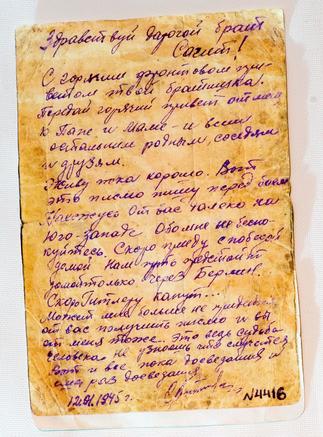 Здравствуй дорогой брат
Сагит!
С горячим фронтовом при-
ветом твой братишка!
Передай горячий привет от меня
к Папе и Маме - и всем
остальным родным, соседям
и друзям.
Живу пока хорошо. Вот
это писмо пишу перед боем
Нахожусь от вас далеко на
юго-западе. Обо мне не беспо-
куйтесь. Скоро приеду с победой
домой. Нам путь
домой только через Берлин.
Скоро Гитлеру капут...
Может мне больше не придется
от вас получить писмо и вы
от меня тоже. Это ведь судьба
человека не узнаешь что случится
Вот и все пока до свидания и
раз до свидания.
1945 г.
№4416